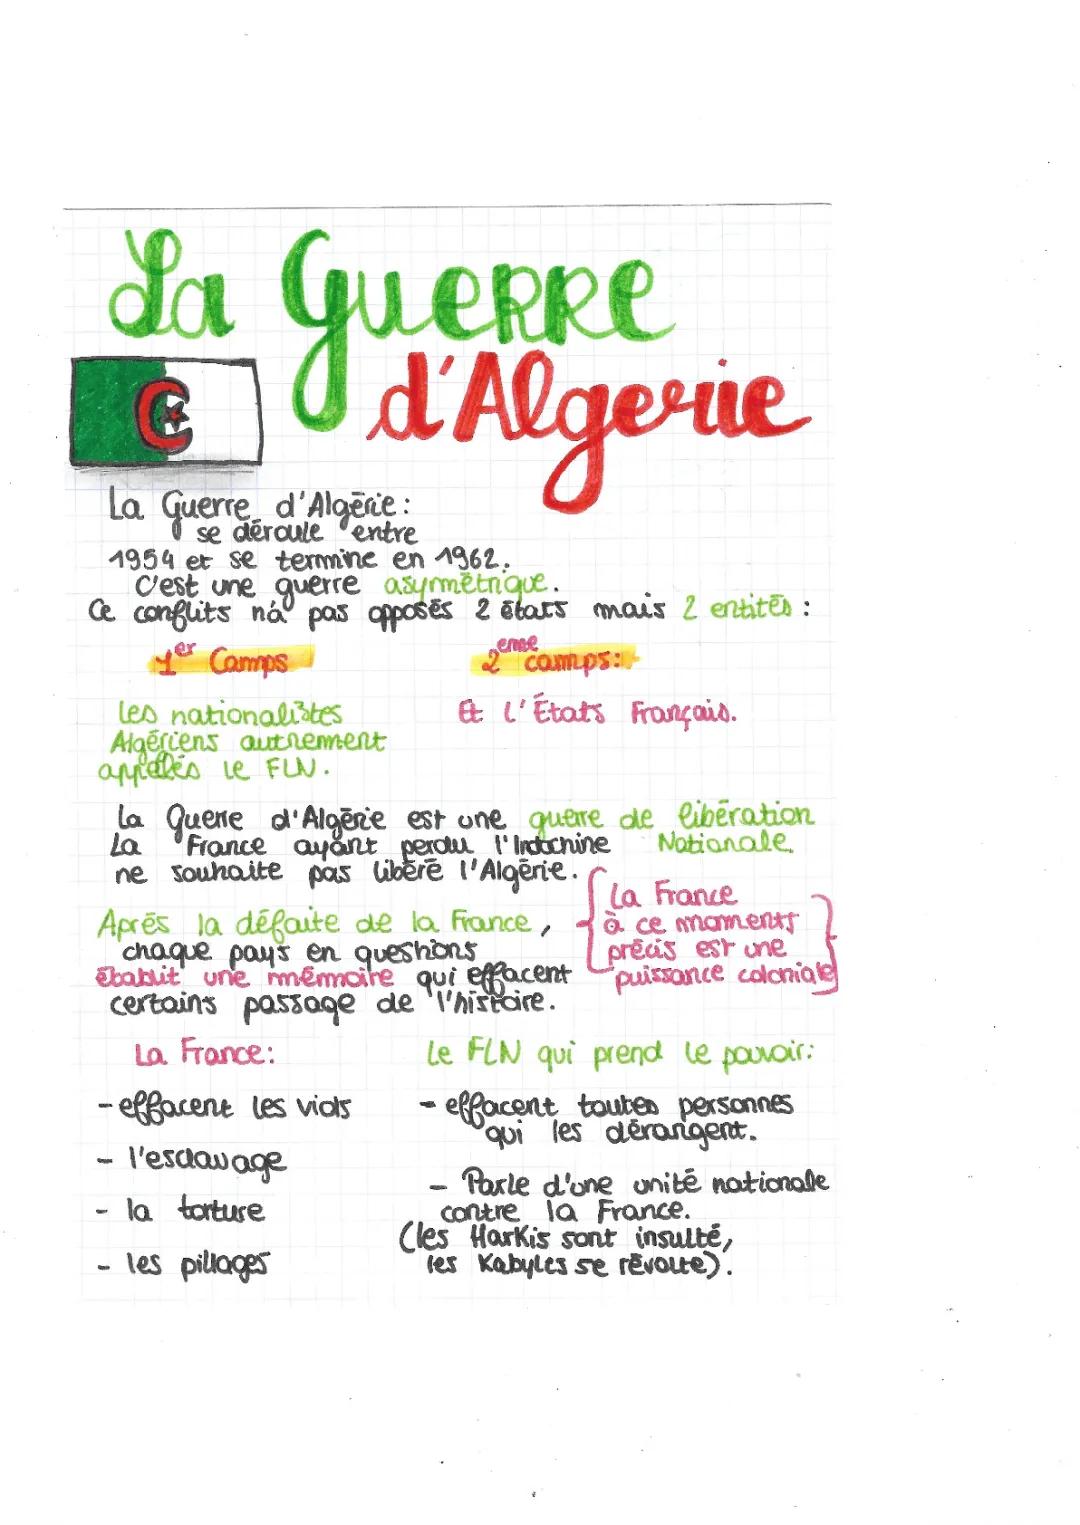 La Guerre
d'Algerie
La Guerre d'Algérie :
se déroule entre
1954 et se termine en 1962.
C'est une guerre asymmétrique.
Ce conflits n'a pas opposés 2 états mais 2 entités :
1er Camps
2eme camps :
Les nationalistes
Algériens autrement
appelés le FLN.
Et l'États Français.
La Guerre d'Algérie est une guerre de libération
Nationale.
La France ayant perdu l'Indochine
ne souhaite pas libéré l'Algérie.
La France
à ce moments
précis est une
puissance coloniale
Après la défaite de la France,
chaque pays en questions
établit une mémoire qui effacent
certains passage de l'histoire.
La France :
- effacent les viols
- l'esclavage
- la torture
- les pillages
Le FLN qui prend le pouvoir :
- effacent toutes personnes
qui les dérangent.
- Parle d'une unité nationale
contre la France.
(les Harkis sont insulté,
les Kabyles se révolte).